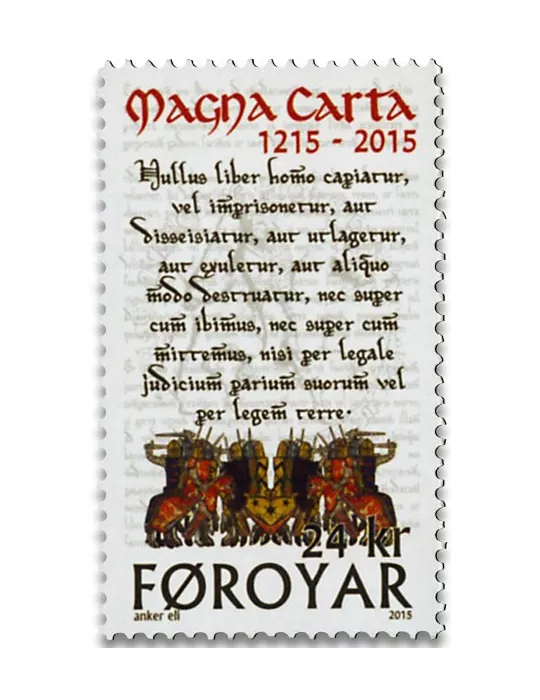 Magna Carta
1215 - 2015
Nullus liber homo capiatur,
vel imprisonetur, aut
disseisiatur, aut utlagetur,
aut exuletur, aut aliquo
modo destruatur, nec super
cum ibimus, nec super cum
mittemus, nisi per legale
judicium parium suorum vel
per legem terre.
24 kr
FØROYAR
anker eli 2015